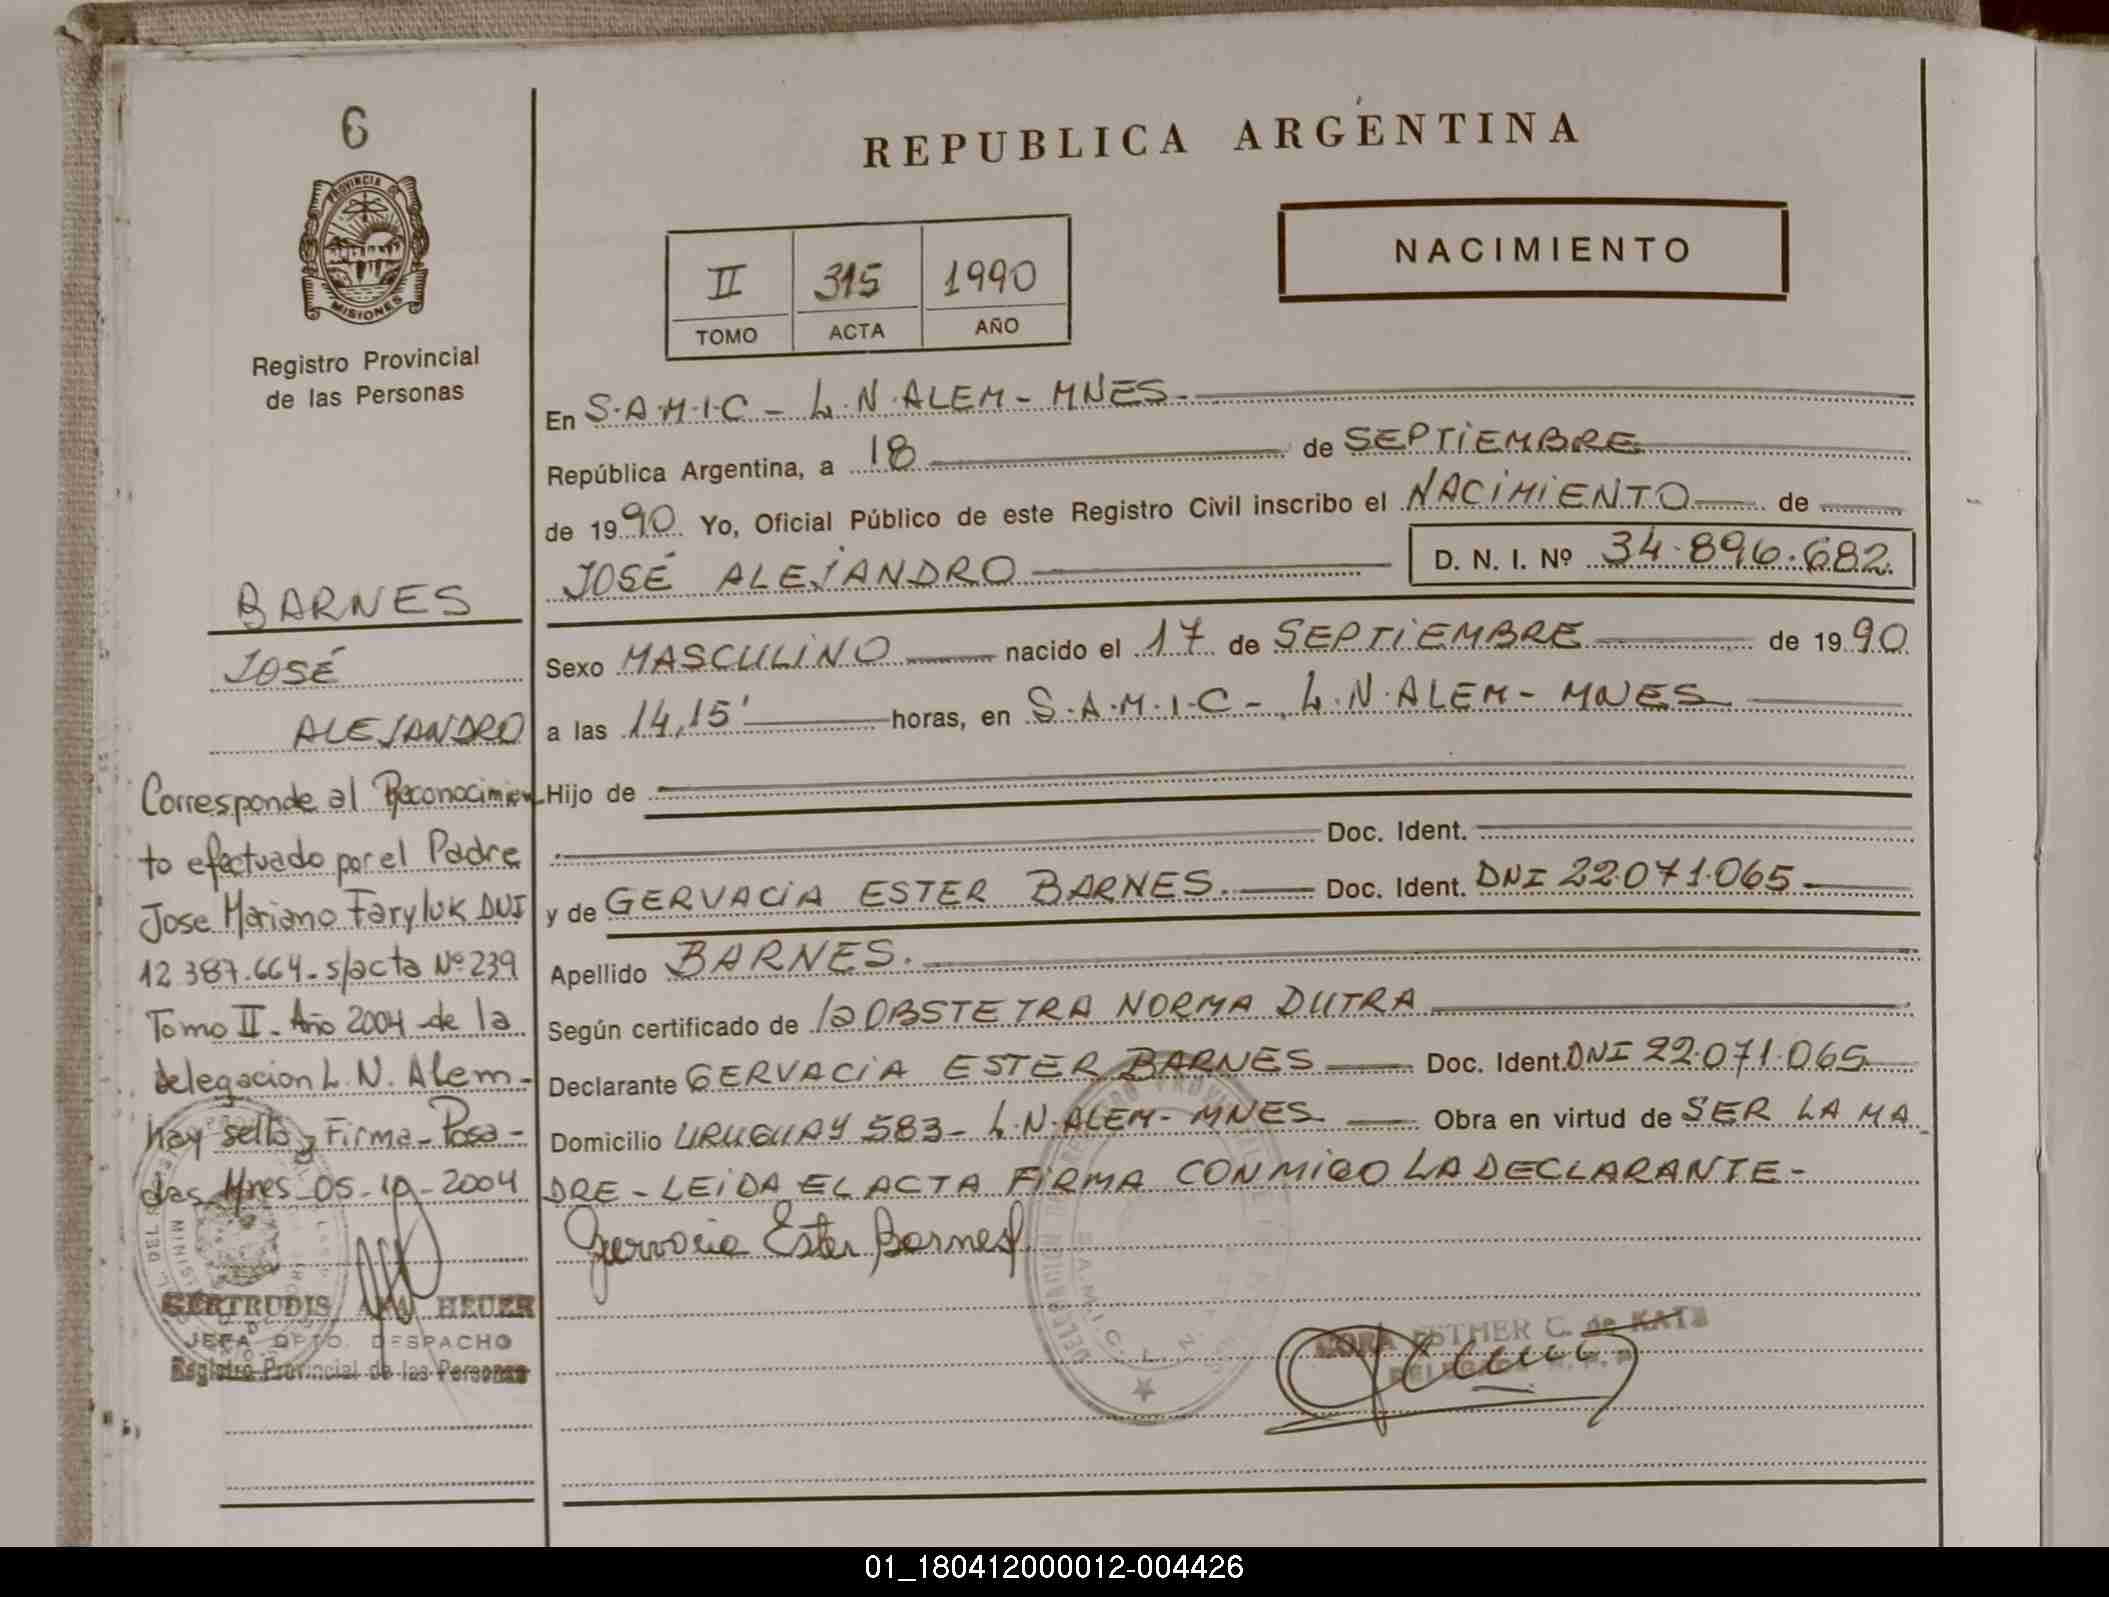 6
REPUBLICA ARGENTINA
PROVINCIA DE
MISIONES
Registro Provincial
de las Personas
NACIMIENTO
II 315 1990
TOMO ACTA AÑO
En S.A.M.I.C - L.N.ALEM - MNES
República Argentina, a 18 de SEPTIEMBRE
de 1990 Yo, Oficial Público de este Registro Civil inscribo el NACIMIENTO de
JOSÉ ALEJANDRO D. N. I. Nº 34.896.682
Sexo MASCULINO nacido el 17 de SEPTIEMBRE de 1990
a las 14,15' horas, en S.A.M.I.C - L.N.ALEM - MNES
Hijo de
Doc. Ident.
y de GERVACIA ESTER BARNES. Doc. Ident. DNI 22.071.065
Apellido BARNES.
Según certificado de la OBSTETRA NORMA DUTRA
Declarante GERVACIA ESTER BARNES Doc. Ident. DNI 22.071.065
Domicilio URUGUAY 583 - L.N.ALEM - MNES Obra en virtud de SER LA MA
DRE - LEIDA EL ACTA FIRMA CONMIGO LA DECLARANTE -
Gervacia Ester Barnes
ESTHER C. de KATZ
BARNES
JOSÉ
ALEJANDRO
Corresponde al Reconocimien
to efectuado por el Padre
Jose Mariano Faryluk DNI
12.387.664 - s/acta Nº 239
Tomo II - Año 2004 - de la
delegacion L. N. Alem -
hay sello y Firma - Posa -
das Mnes - 05 - 10 - 2004
GERTRUDIS ANA HEUER
JEFA DPTO. DESPACHO
Registro Provincial de las Personas
01_180412000012-004426